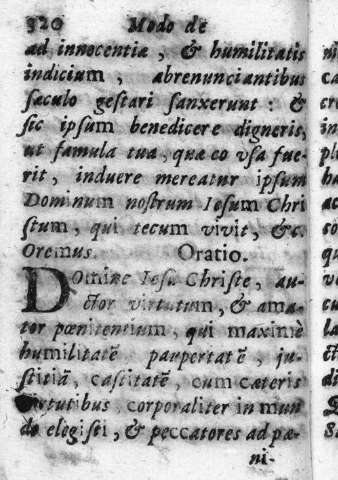 320 Modo de
ad innocentiæ, & humilitatis
indicium, abrenunciantibus
sæculo gestari sanxerunt: &
sic ipsum benedicere digneris,
ut famula tua, quæ eo vsa fue-
rit, induere mereatur ipsum
Dominum nostrum Iesum Chri
stum, qui tecum vivit, &c.
Oremus. Oratio.
DOmine Iesu Christe, au-
ctor virtutum, & ama-
tor pœnitentium, qui maximè
humilitatē paupertatē, ju-
stitiā, castitatē, cum cæteris
virtutibus corporaliter in mun
do elegisti, & peccatores ad pæ-
ni-